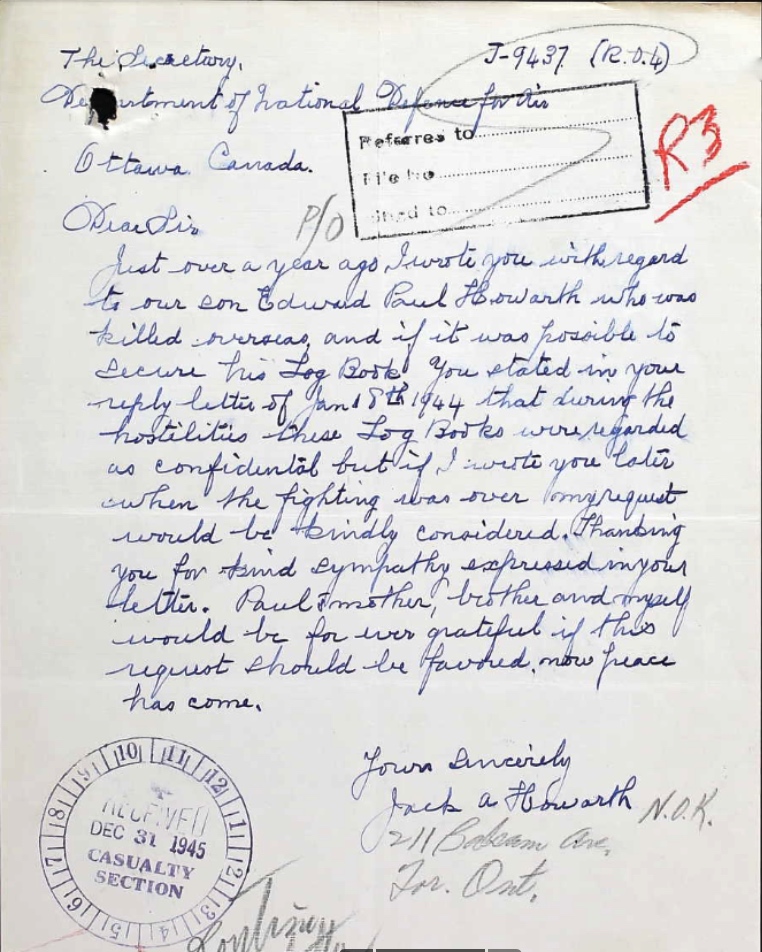 The Secretary,
J-9437 (R.O.4)
Department of National Defence for Air
Ottawa Canada.
Referred to
File No
R3
to
Dear Sir
P/O
Just over a year ago, I wrote you with regard
to our son Edward Paul Howarth who was
killed overseas, and if it was possible to
secure his Log Book. You stated in your
reply letter of Jan 18th 1944 that during the
hostilities these Log Books were regarded
as confidental but if I wrote you later
when the fighting was over my request
would be kindly considered. Thanking
you for kind sympathy expressed in your
letter. Paul's mother, brother and myself
would be for ever grateful if this
request should be favored, now peace
has come.
Yours Sincerely
Jack A Howarth N.O.K.
211 Balsam Ave,
Tor. Ont.
10 11 12 1 2 3 4 5 6 7 8 9
RECEIVED
DEC 31 1945
CASUALTY
SECTION